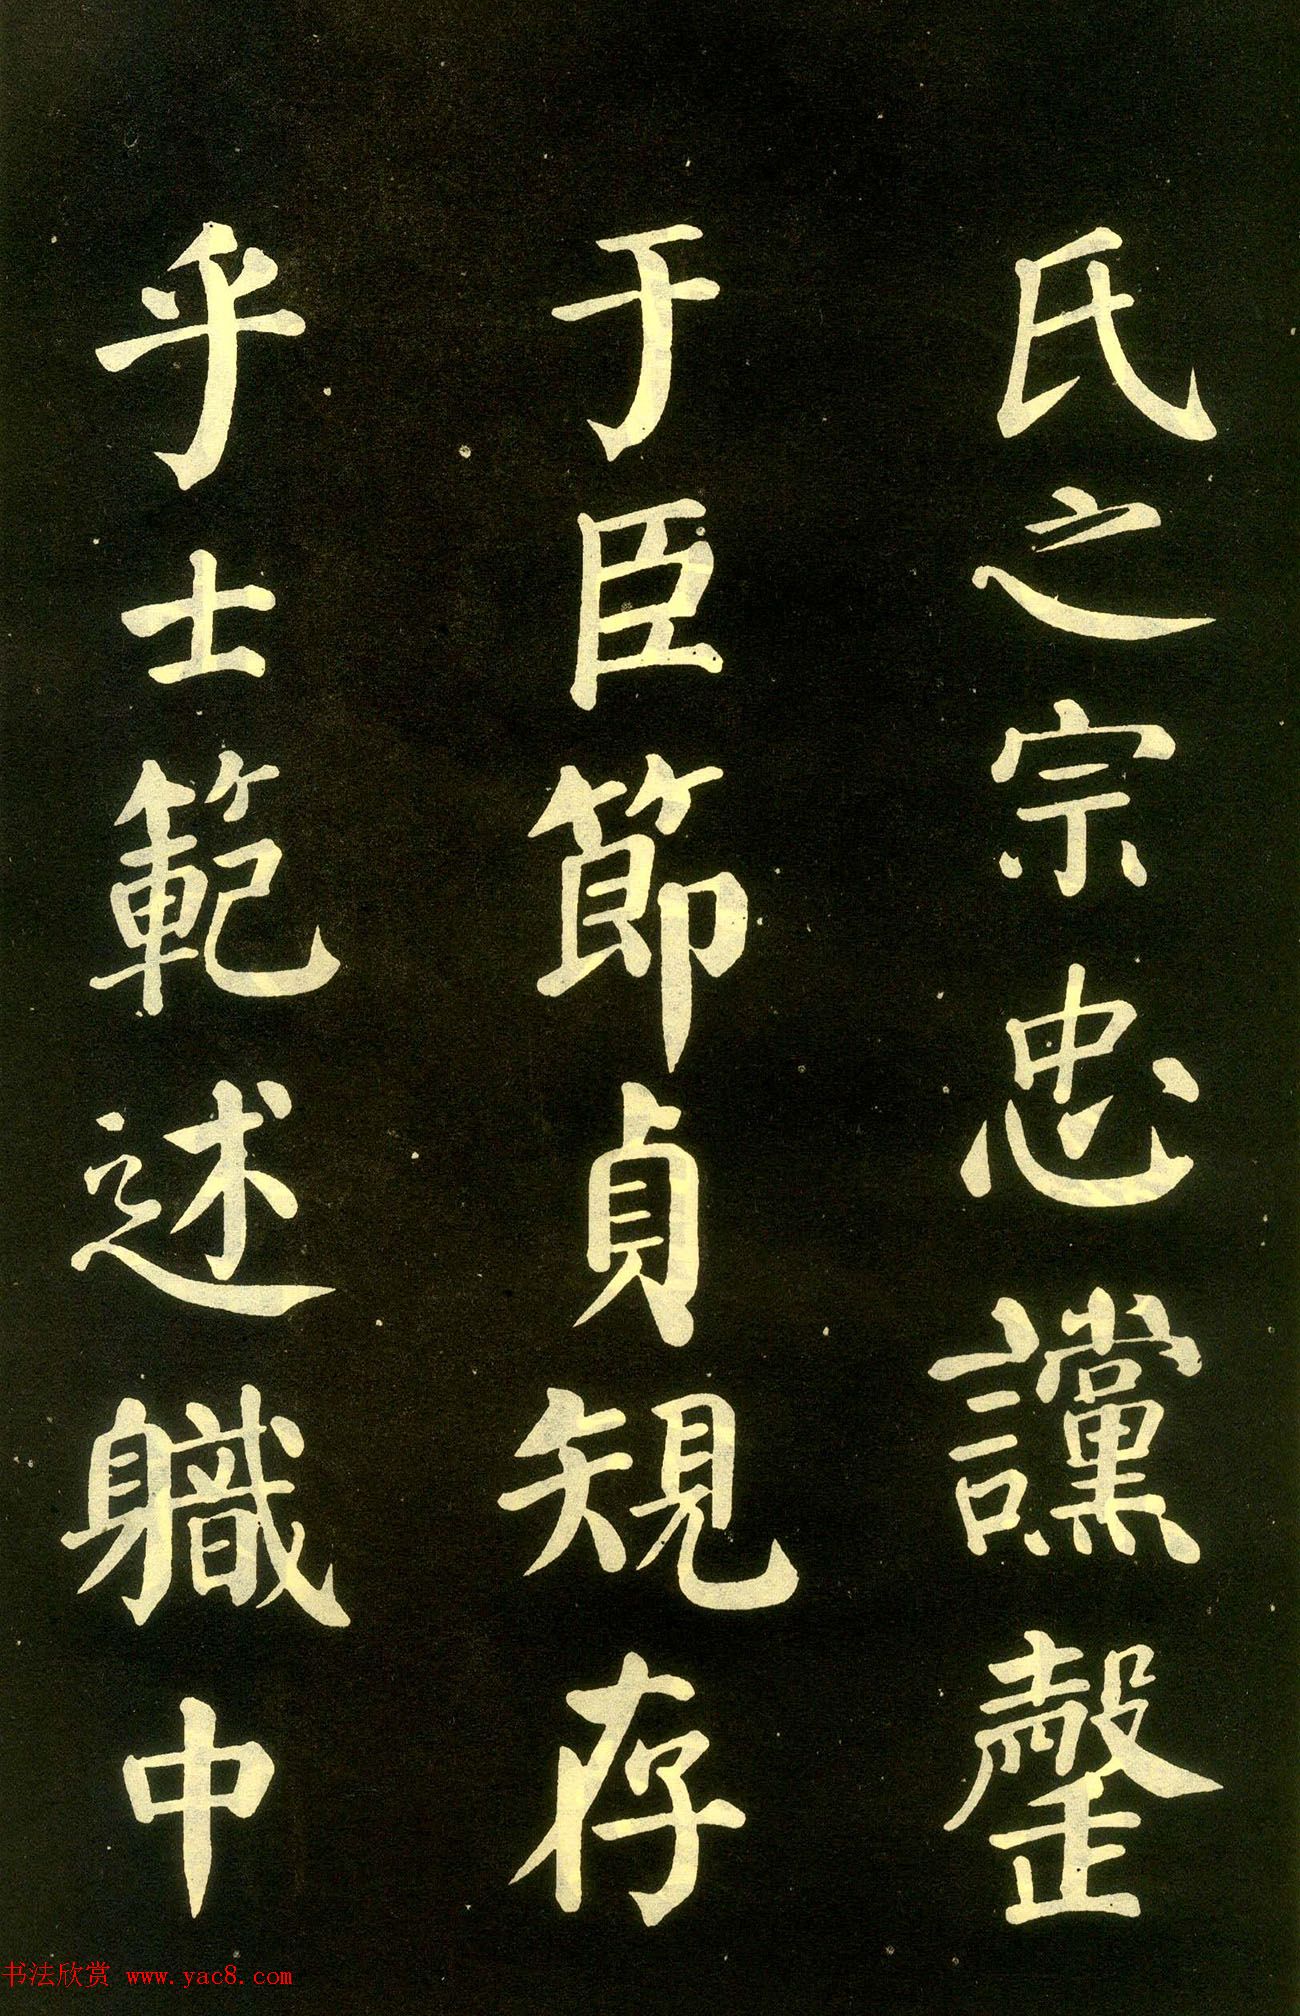 氏之宗忠讜罄
于臣節貞規存
乎士範述職中
书法欣赏 www.yac8.com